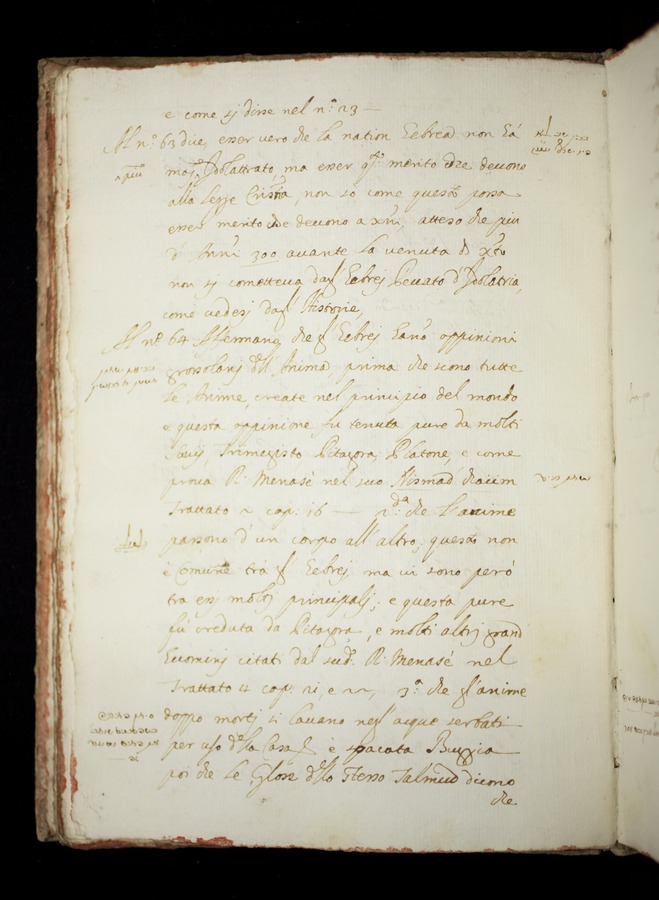 e come si disse nel n.º 23 —
Al n.º 63 dice, esser vero che la nation Hebrea non hà
mai Idolatrato, ma esser q.to merito che devono
a più
alla legge Cristia, non so come questo possa
esser merito che devono a xni, atteso che più
d'Anni 300 avante la venuta di xto
non si cometteva dagl'Hebrej Peccato d'Idolatria,
come vedesi dagl'Historie,
Al n.º 64 Afermano che gl'Hebrej hano oppinioni
grossolani dell Anima, prima che siano tutte
le Anime, create nel principio del mondo
e questa oppinione fu tenuta pure da molti
Savij, Trimegisto Pitagora, Platone, e come
prova R. Menasè nel suo Nismad Haiim
Trattato 2 cap. 16 — 2.da che l'anime
passano d un corpo all'altro, questa non
è comune trà gl Hebrej ma vi sono però
tra essi molti principalj, e questa pure
fù creduta da Pitagora, e molti altri grand
Huominj citati dal sud.º R. Menasè nel
Trattato 4 cap. 21, e 22, 3.ª che gl'anime
doppo morti si lavano negl'acque serbati
per uso della Casa, è spacata Buggia
poi che le Glose dello stesso Talmud dicono
che